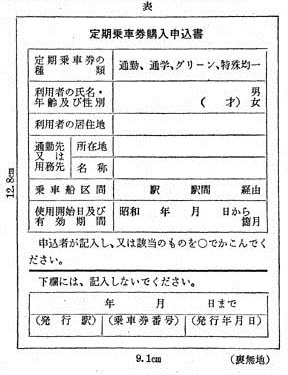 表
定期乗車券購入申込書
定期乗車券の種類 通勤、通学、グリーン、特殊均一
利用者の氏名・年齢及び性別 ( 才) 男 女
利用者の居住地
通勤先又は用務先 所在地
名称
乗車船区間 駅 駅間 経由
使用開始日及び有効期間 昭和 年 月 日から 箇月
申込者が記入し、又は該当のものを○でかこんでく
ださい。
下欄には、記入しないでください。
年 月 日まで
(発行駅) (乗車券番号) (発行年月日)
12.8cm
9.1cm
(裏無地)